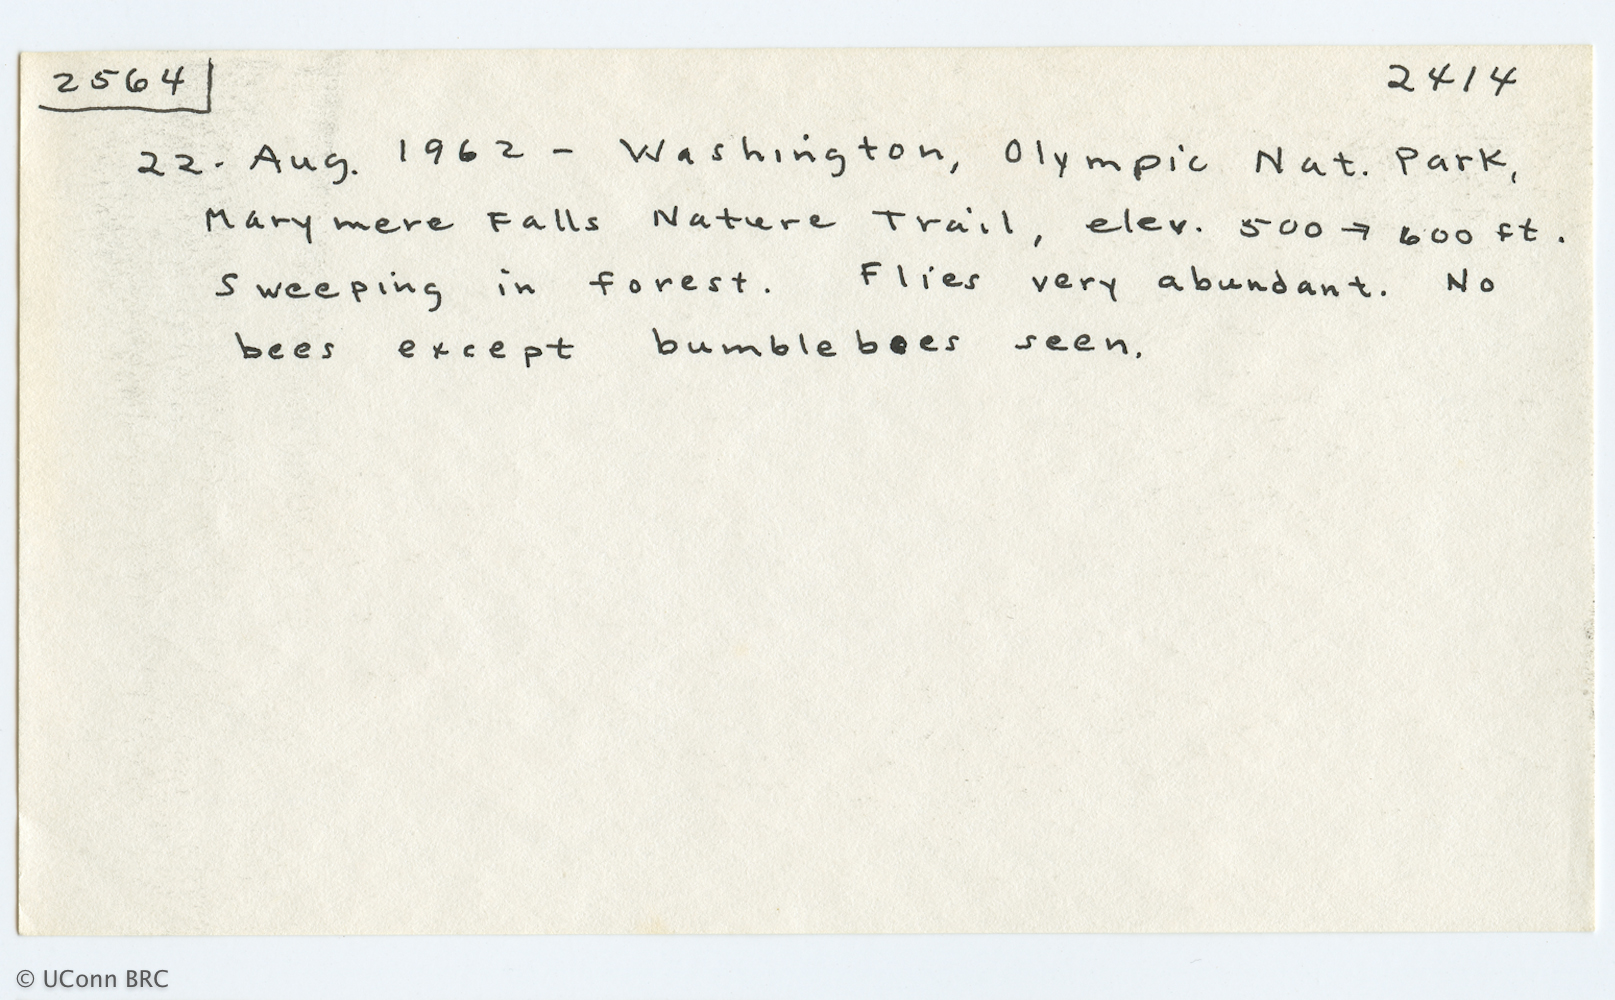 2564 2414
22. Aug. 1962 - Washington, Olympic Nat. Park,
Marymere Falls Nature Trail, elev. 500 → 600 ft.
Sweeping in forest. Flies very abundant. No
bees except bumblebees seen.
© UConn BRC